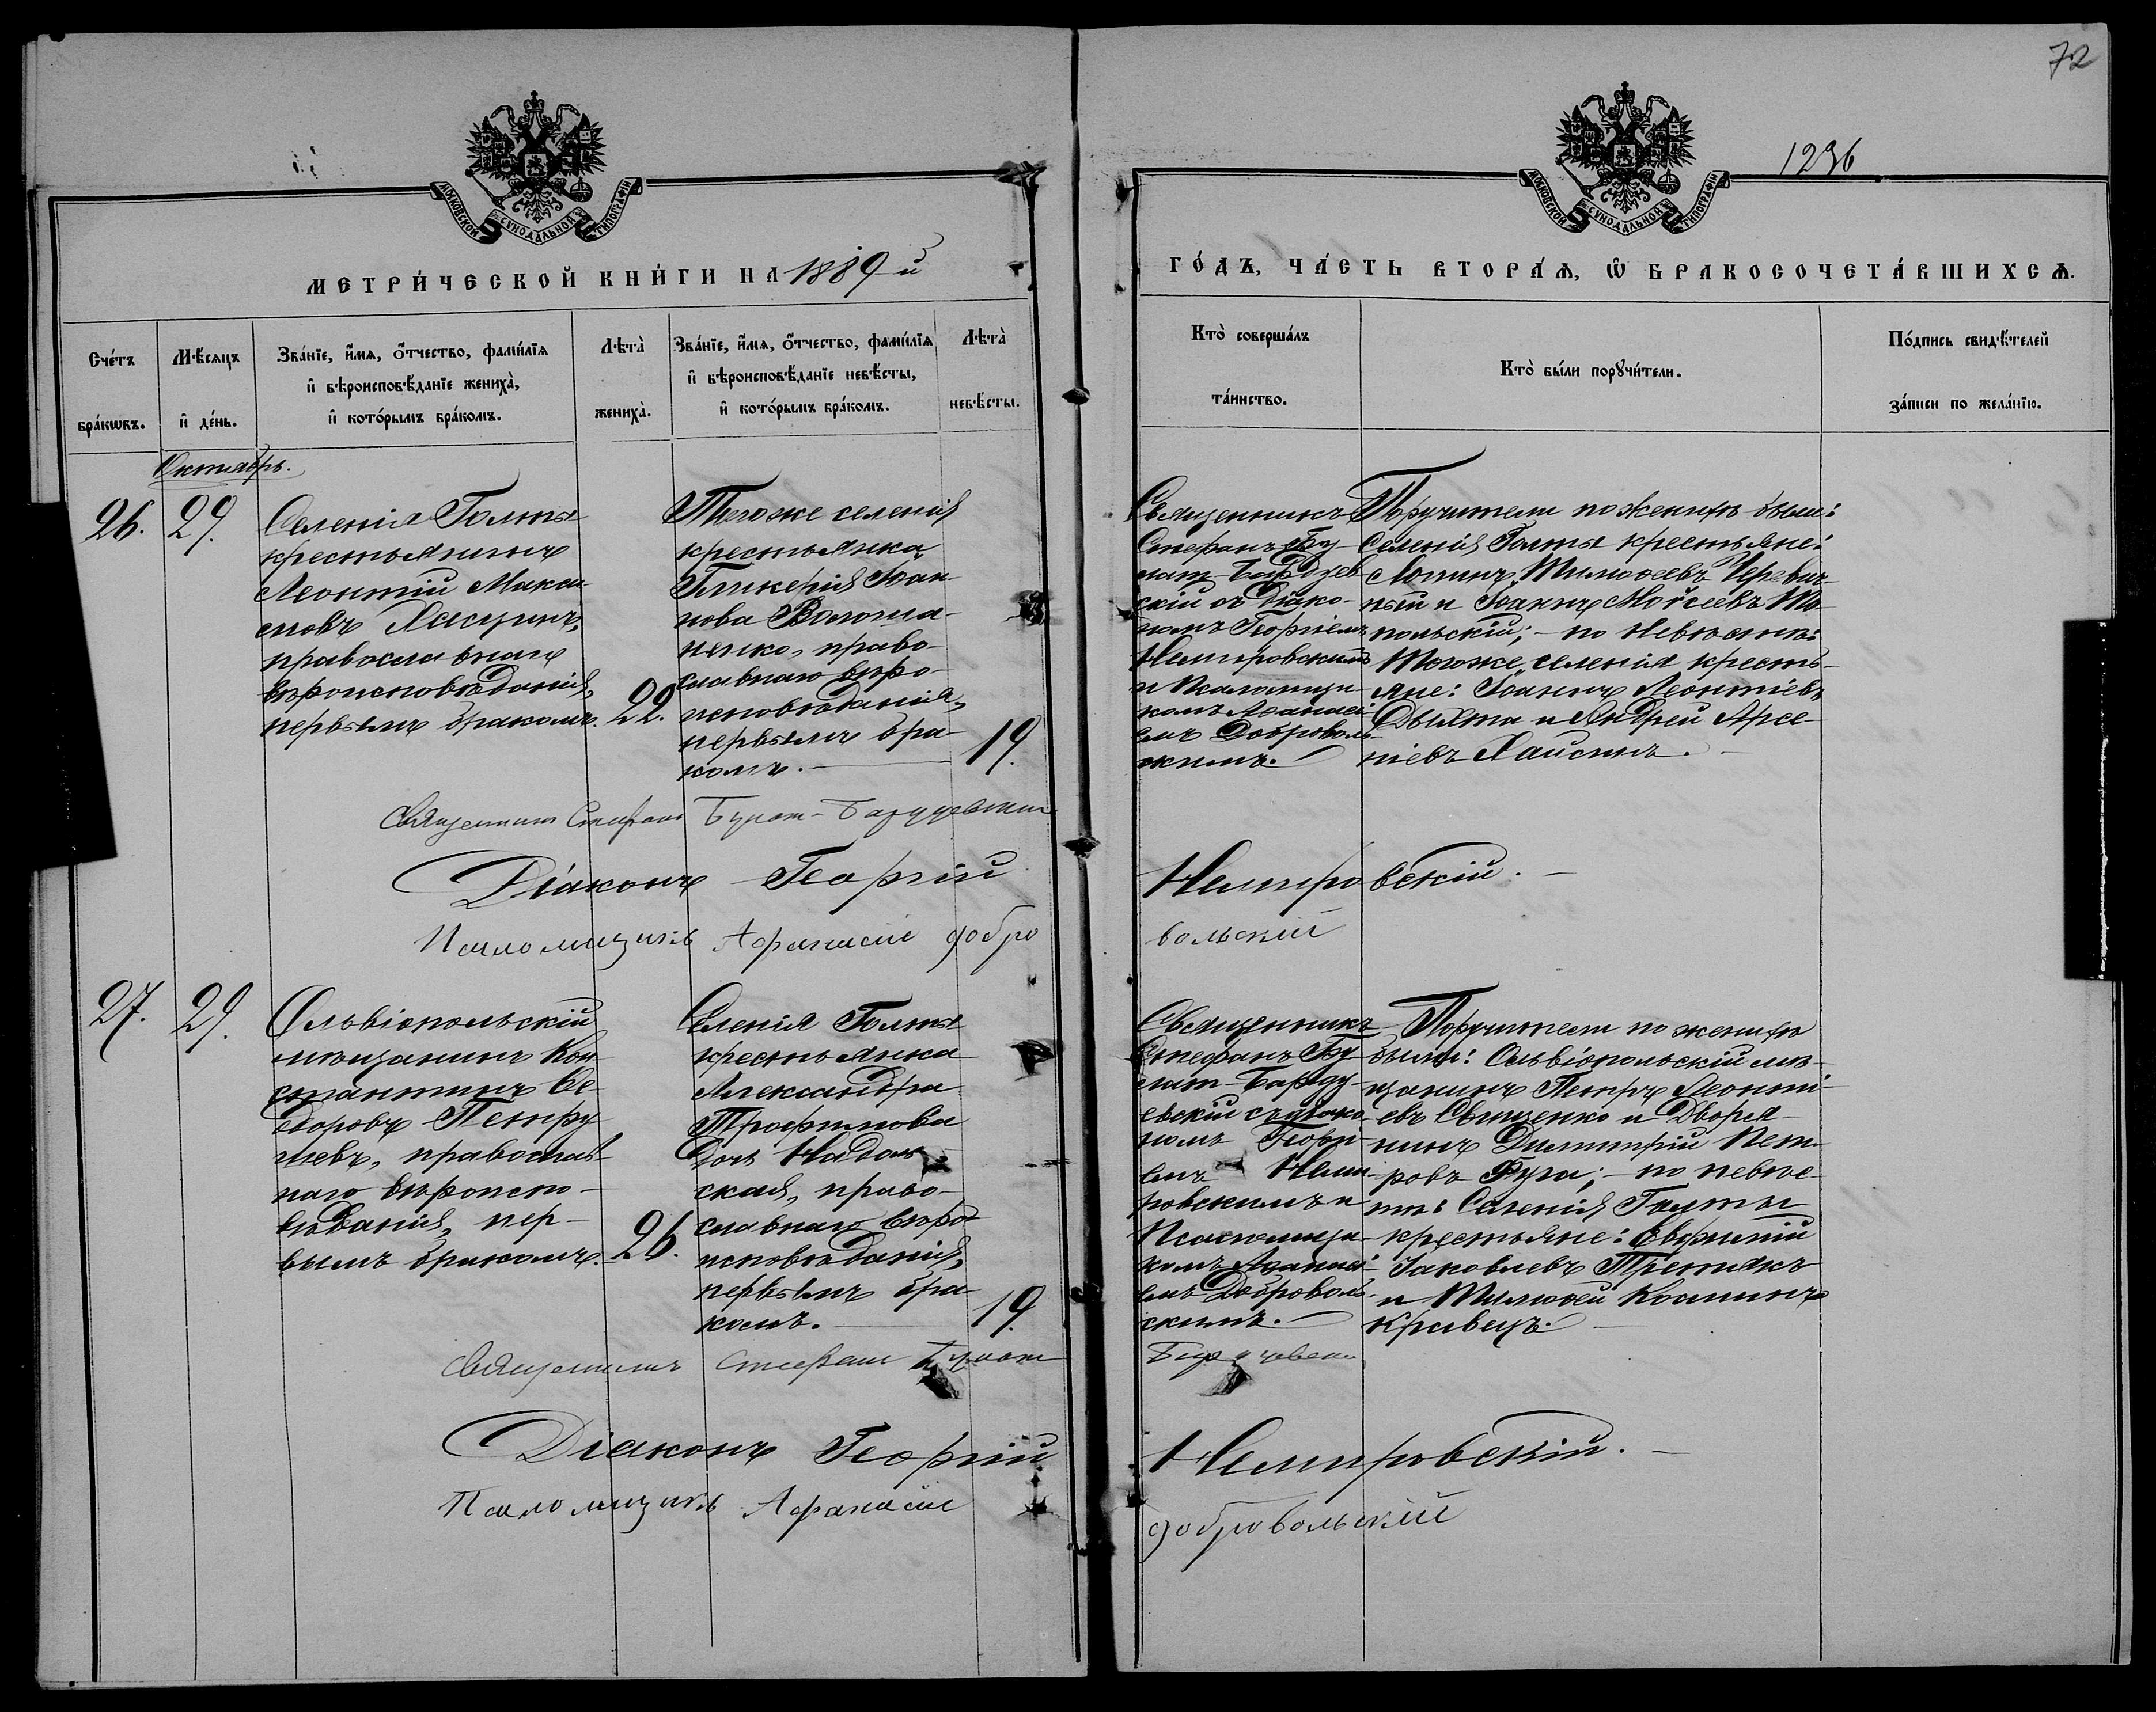 72
1236
МОСКОВСКОЙ СУНОДАЛЬНОЙ ТИПОГРАФІИ
МОСКОВСКОЙ СУНОДАЛЬНОЙ ТИПОГРАФІИ
МЕТРИ́ЧЕСКОЙ КНИ́ГИ НА 1889 й
ГО́ДЪ, ЧА́СТЬ ВТОРА́Ѧ, Ѽ БРАКОСОЧЕТА́ВШИХСѦ.
Сче́тъ
бра́кѡвъ.
Мѣ́сяцъ
и҆ де́нь.
Зва́нїе, и҆́мя, ѻ҆́тчество, фами́лїя
и҆ вѣроисповѣ́данїе жениха̀,
и҆ кото́рымъ бра́комъ.
Лѣта̀
жениха̀.
Зва́нїе, и҆́мя, ѻ҆́тчество, фами́лїя
и҆ вѣроисповѣ́данїе невѣ́сты,
и҆ кото́рымъ бра́комъ.
Лѣта̀
невѣ́сты.
Кто̀ соверша́лъ
та́инство.
Кто̀ бы́ли порꙋчи́тели.
По́дпись свидѣ́телей
за́писи по жела́нїю.
Октябрь.
26.
29.
Селенія Голты
крестьянинъ
Леонтій Макси-
мовъ
православнаго
вѣроисповѣданія,
первымъ бракомъ.
22.
Тогоже селенія
крестьянка
Гликерія Іоан-
нова Волоша-
ненко, право-
славнаго вѣро-
исповѣданія,
первымъ бра-
комъ.
19.
Священникъ
Стефанъ Бу-
лат-Бардзев
скій съ діако-
номъ Георгіемъ
Немировскимъ
и Псаломщи-
комъ Афанасі-
емъ Доброволь-
скимъ.
Поручители по женихѣ были:
Селенія Голты крестьяне:
Логинъ Тимоѳеевъ Черевич-
ный и Іоаннъ Моѵсеевъ То-
польскій; - по невѣстѣ:
Тогоже селенія кресть-
яне: Іоаннъ Леонтіевъ
и Андрей Арсе-
ніевъ
Священникъ Стефанъ
Діаконъ Георгій Немировскій.
Псаломщикъ Афанасій Добровольскій
27.
29.
Ольвіопольскій
мѣщанинъ Кон-
стантинъ Ѳе-
доровъ Петру-
шевъ, православ-
наго вѣроиспо-
вѣданія, пер-
вымъ бракомъ.
26.
Селенія Голты
крестьянка
Александра
Трофимова
Дочь Надоль-
ская, право-
славнаго вѣро-
исповѣданія,
первымъ бра-
комъ.
19.
Священникъ
Стефанъ Бу-
лат-Бардзу-
евскій съ діако-
номъ Георгі-
емъ Неми-
ровскимъ и
Псаломщи-
комъ Афанасі-
емъ Доброволь-
скимъ.
Поручители по женихѣ
были: Ольвіопольскій мѣ-
щанинъ Петръ Леонті-
евъ Свищенко и Дворя-
нинъ Димитрій Пет-
ровъ; - по невѣс-
тѣ: Селенія Голты
крестьяне: Евфимій
Іаковлевъ Третякъ
и Тимоѳей Косминъ
Кравецъ.
Священникъ Стефанъ
Діаконъ Георгій Немировскій.
Псаломщикъ Афанасій
Добровольскій